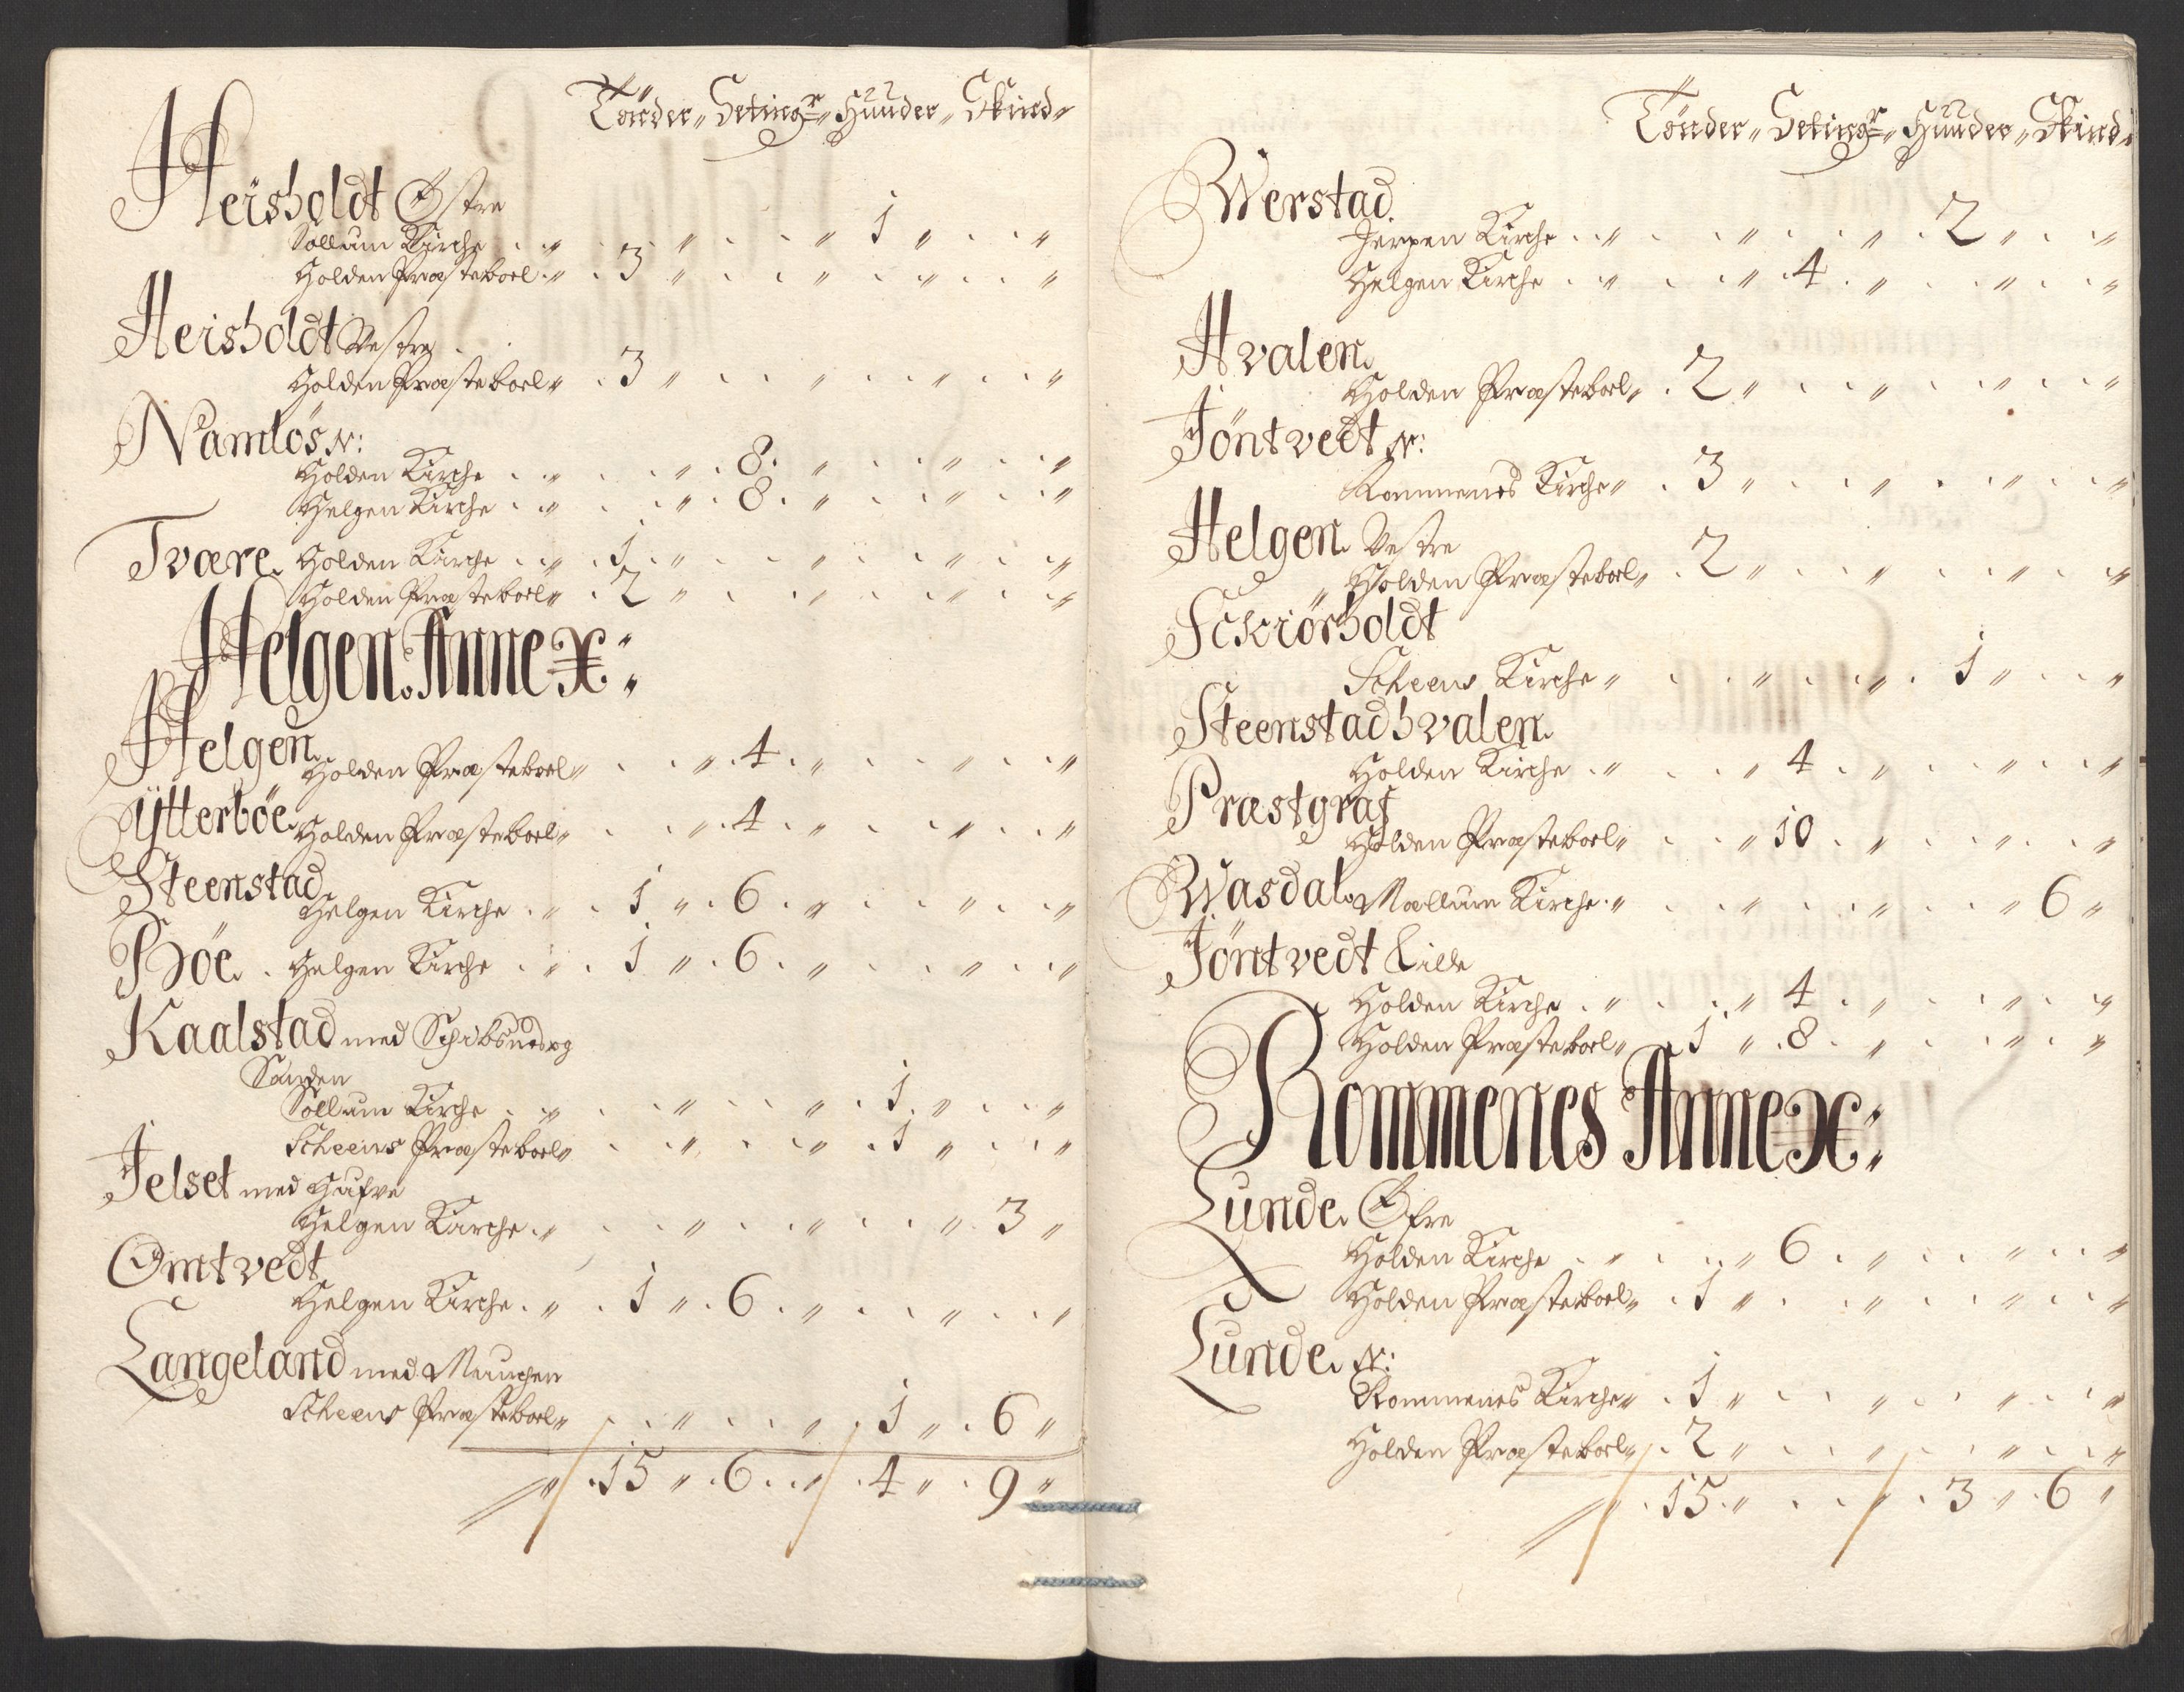 Tönder „ Seting^r „ Huuder „ Skind „
Heisholdt Østre
Sollum Kirche . . „ . . „ . . „ 1 „ . . „
Holden Præsteboel . „ . 3 „ . . „ . . „ . . „
Heisholdt Vestre
Holden Præsteboel „ . 3 „ . . „ . . „ . . „
Namløs N:
Holden Kirche . . „ . . „ . 8 . „ . . „ . . „
Helgen Kirche . . „ . . „ . 8 . „ . . „ . . „
Tvære. Holden Kirche . . „ . 1 . „ . . „ . . „ . . „
Holden Præsteboel „ . 2 „ . . „ . . „ . . „
Helgen. Annex:
Helgen.
Holden Præsteboel „ . . „ . 4 . „ . . „ . . „
Ÿtterböe. Holden Præsteboel „ . . „ . 4 . „ . . „ . . „
Steenstad
Helgen Kirche . „ . 1 „ . 6 . „ . . „ . . „
Böe. . Helgen Kirche . „ . 1 „ . 6 . „ . . „ . . „
Kaalstad med Schibsnes og
Sanden
Sollum Kirche . . „ . . „ . . „ . 1 . „ . . „
Scheens Præsteboel „ . . „ . . „ . 1 „ . . „
Jelset med Hafve
Helgen Kirche . „ . . „ . . „ . . „ 3 „
Omtvedt
Helgen Kirche . „ . 1 „ . 6 . „ . . „ . . „
Langeland med Meuchen
Scheens Præsteboel „ . . „ . . „ . 1 „ . 6 „
„ . 15 „ . 6 . . „ . 4 „ . 9 „
Tönder „ Seting^r „ Huuder „ Skind „
Werstad.
Jerpen Kirche . . „ . . „ . . „ . 2 „ . . „
Helgen Kirche . „ . . „ . 4 . „ . . „ . . „
Hvalen.
Holden Præsteboel „ . 2 „ . . „ . . „ . . „
Jöntvedt N:
Rommenes Kirche „ . 3 „ . . „ . . „ . . „
Helgen. Vestre
„ Holden Præsteboel „ . 2 „ . . „ . . „ . . „
Sckiörholdt
Scheens Kirche „ . . „ . . „ . 1 „ . . „
Steenstadhvalen.
Holden Kirche . „ . . „ 4 . „ . . „ . . „
Præstgraf
Holden Præsteboel „ . . „ 10 . „ . . „ . . „
Wasdal. Mællum Kirche . „ . . „ . . „ . . „ 6 „
Jöntvedt Lille
Holden Kirche . „ . . „ 4 . „ . . „ . . „
Holden Præsteboel „ . 1 „ . 8 . „ . . „ . . „
Rommenes Annex:
Lunde. Øfre
Holden Kirche . „ . . „ 6 . „ . . „ . . „
Holden Præsteboel „ . 1 „ . . „ . . „ . . „
Lunde. N:
Rommenes Kirche „ . 1 „ . . „ . . „ . . „
Holden Præsteboel „ . 2 „ . . „ . . „ . . „
„ . 15 . „ . . „ . 3 „ . 6 „